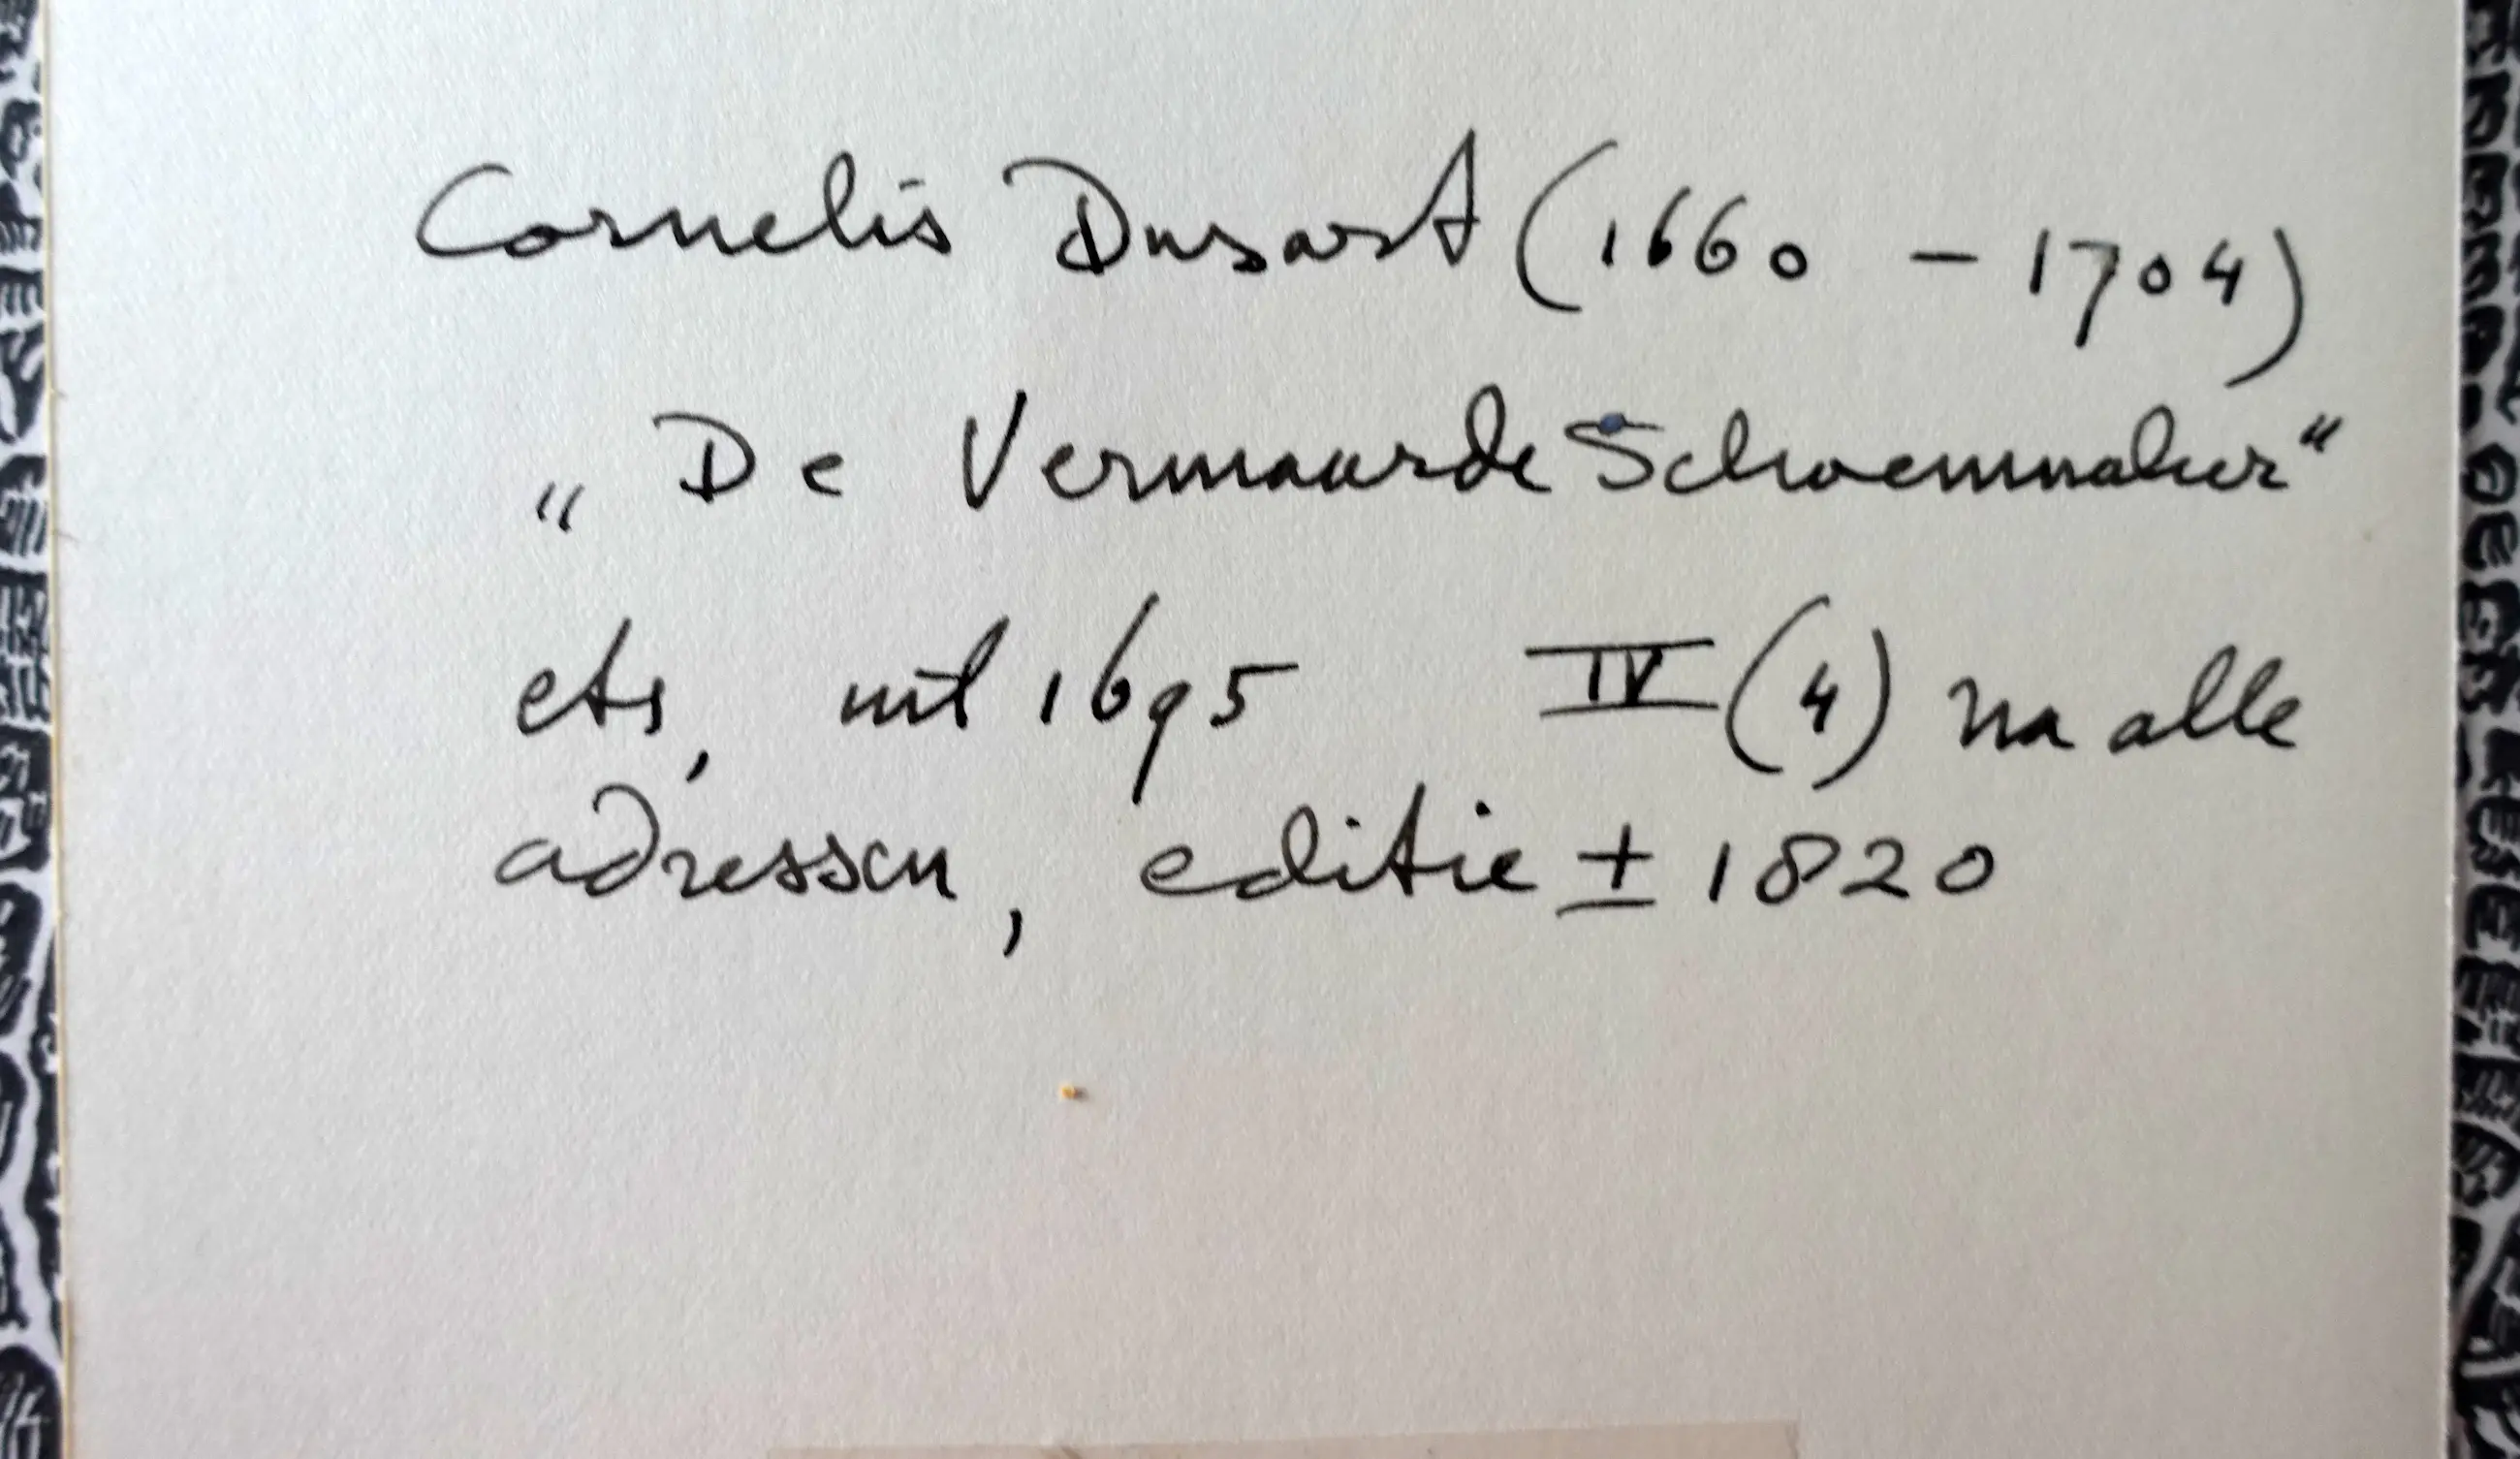 Cornelis Dusart (1660 - 1704)
„De Vermaarde Schoenmaker“
ets, uit 1695 IV (4) na alle
adressen, editie ± 1820